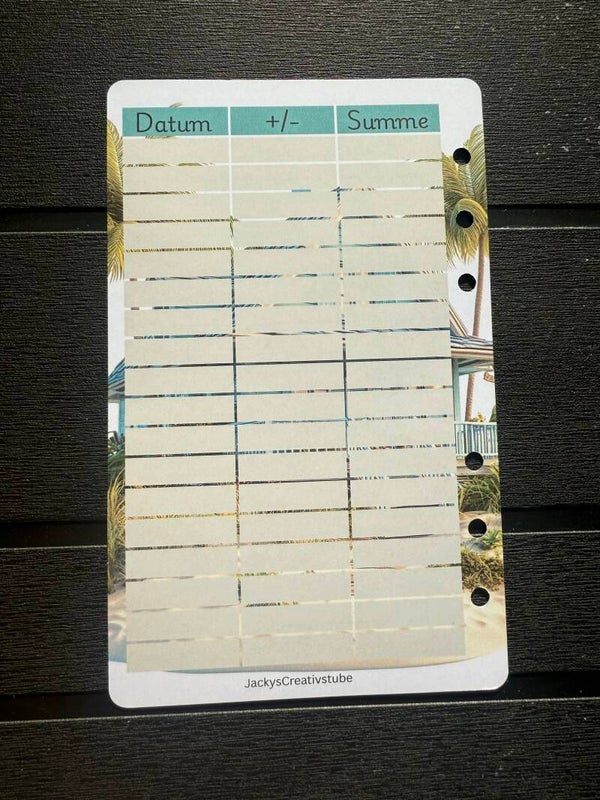 Datum +/- Summe
JackysCreativstube